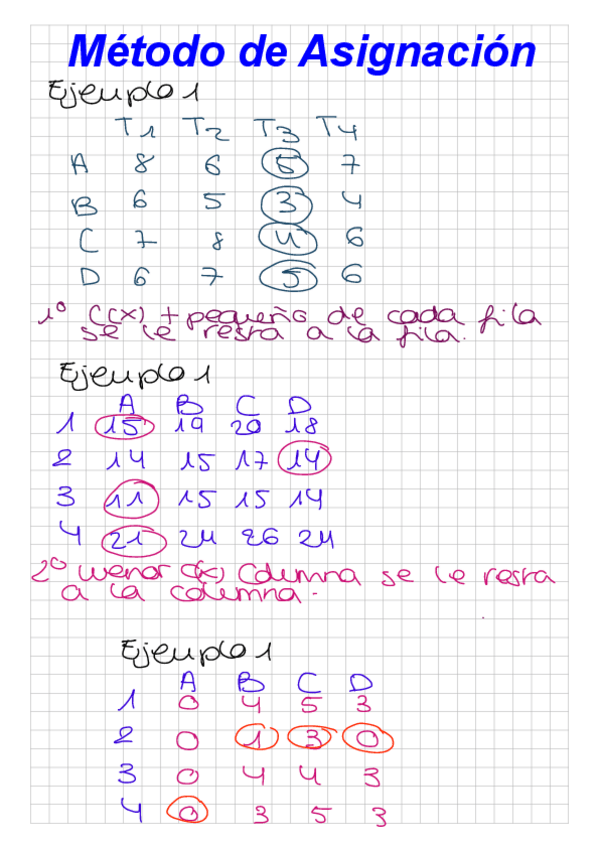 Método de Asignación
Ejemplo 1
T1 T2 T3 T4
A 8 6 5 7
B 6 5 3 4
C 7 8 4 6
D 6 7 5 6
1º C(x) + pequeño de cada fila
se le resta a la fila.
Ejemplo 1
A B C D
1 15 19 20 18
2 14 15 17 14
3 11 15 15 14
4 21 24 26 24
2º menor C(x) Columna se le resta
a la columna.
Ejemplo 1
A B C D
1 0 4 5 3
2 0 1 3 0
3 0 4 4 3
4 0 3 5 3